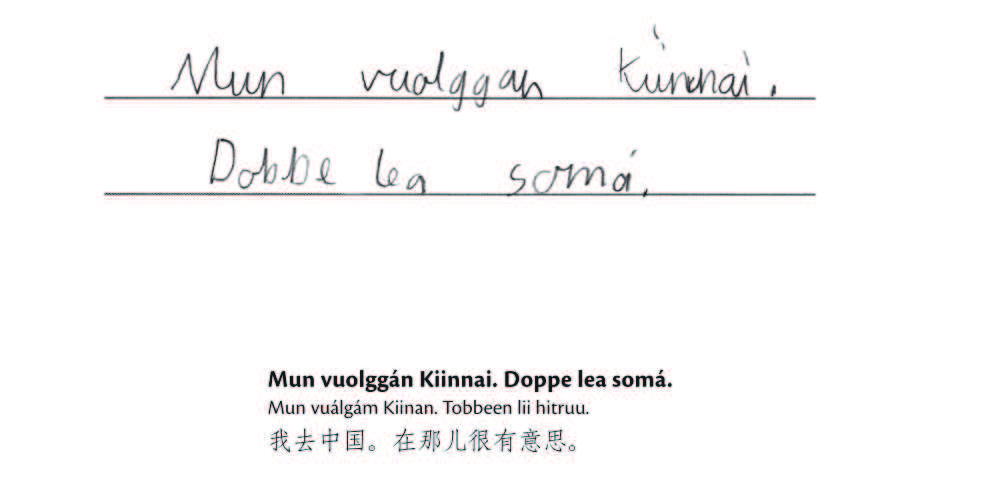 Mun vuolggan Kiinnai.
Dobbe lea somá.
Mun vuolggán Kiinnai. Doppe lea somá.
Mun vuálgám Kiinan. Tobbeen lii hitruu.
我去中国。在那儿很有意思。